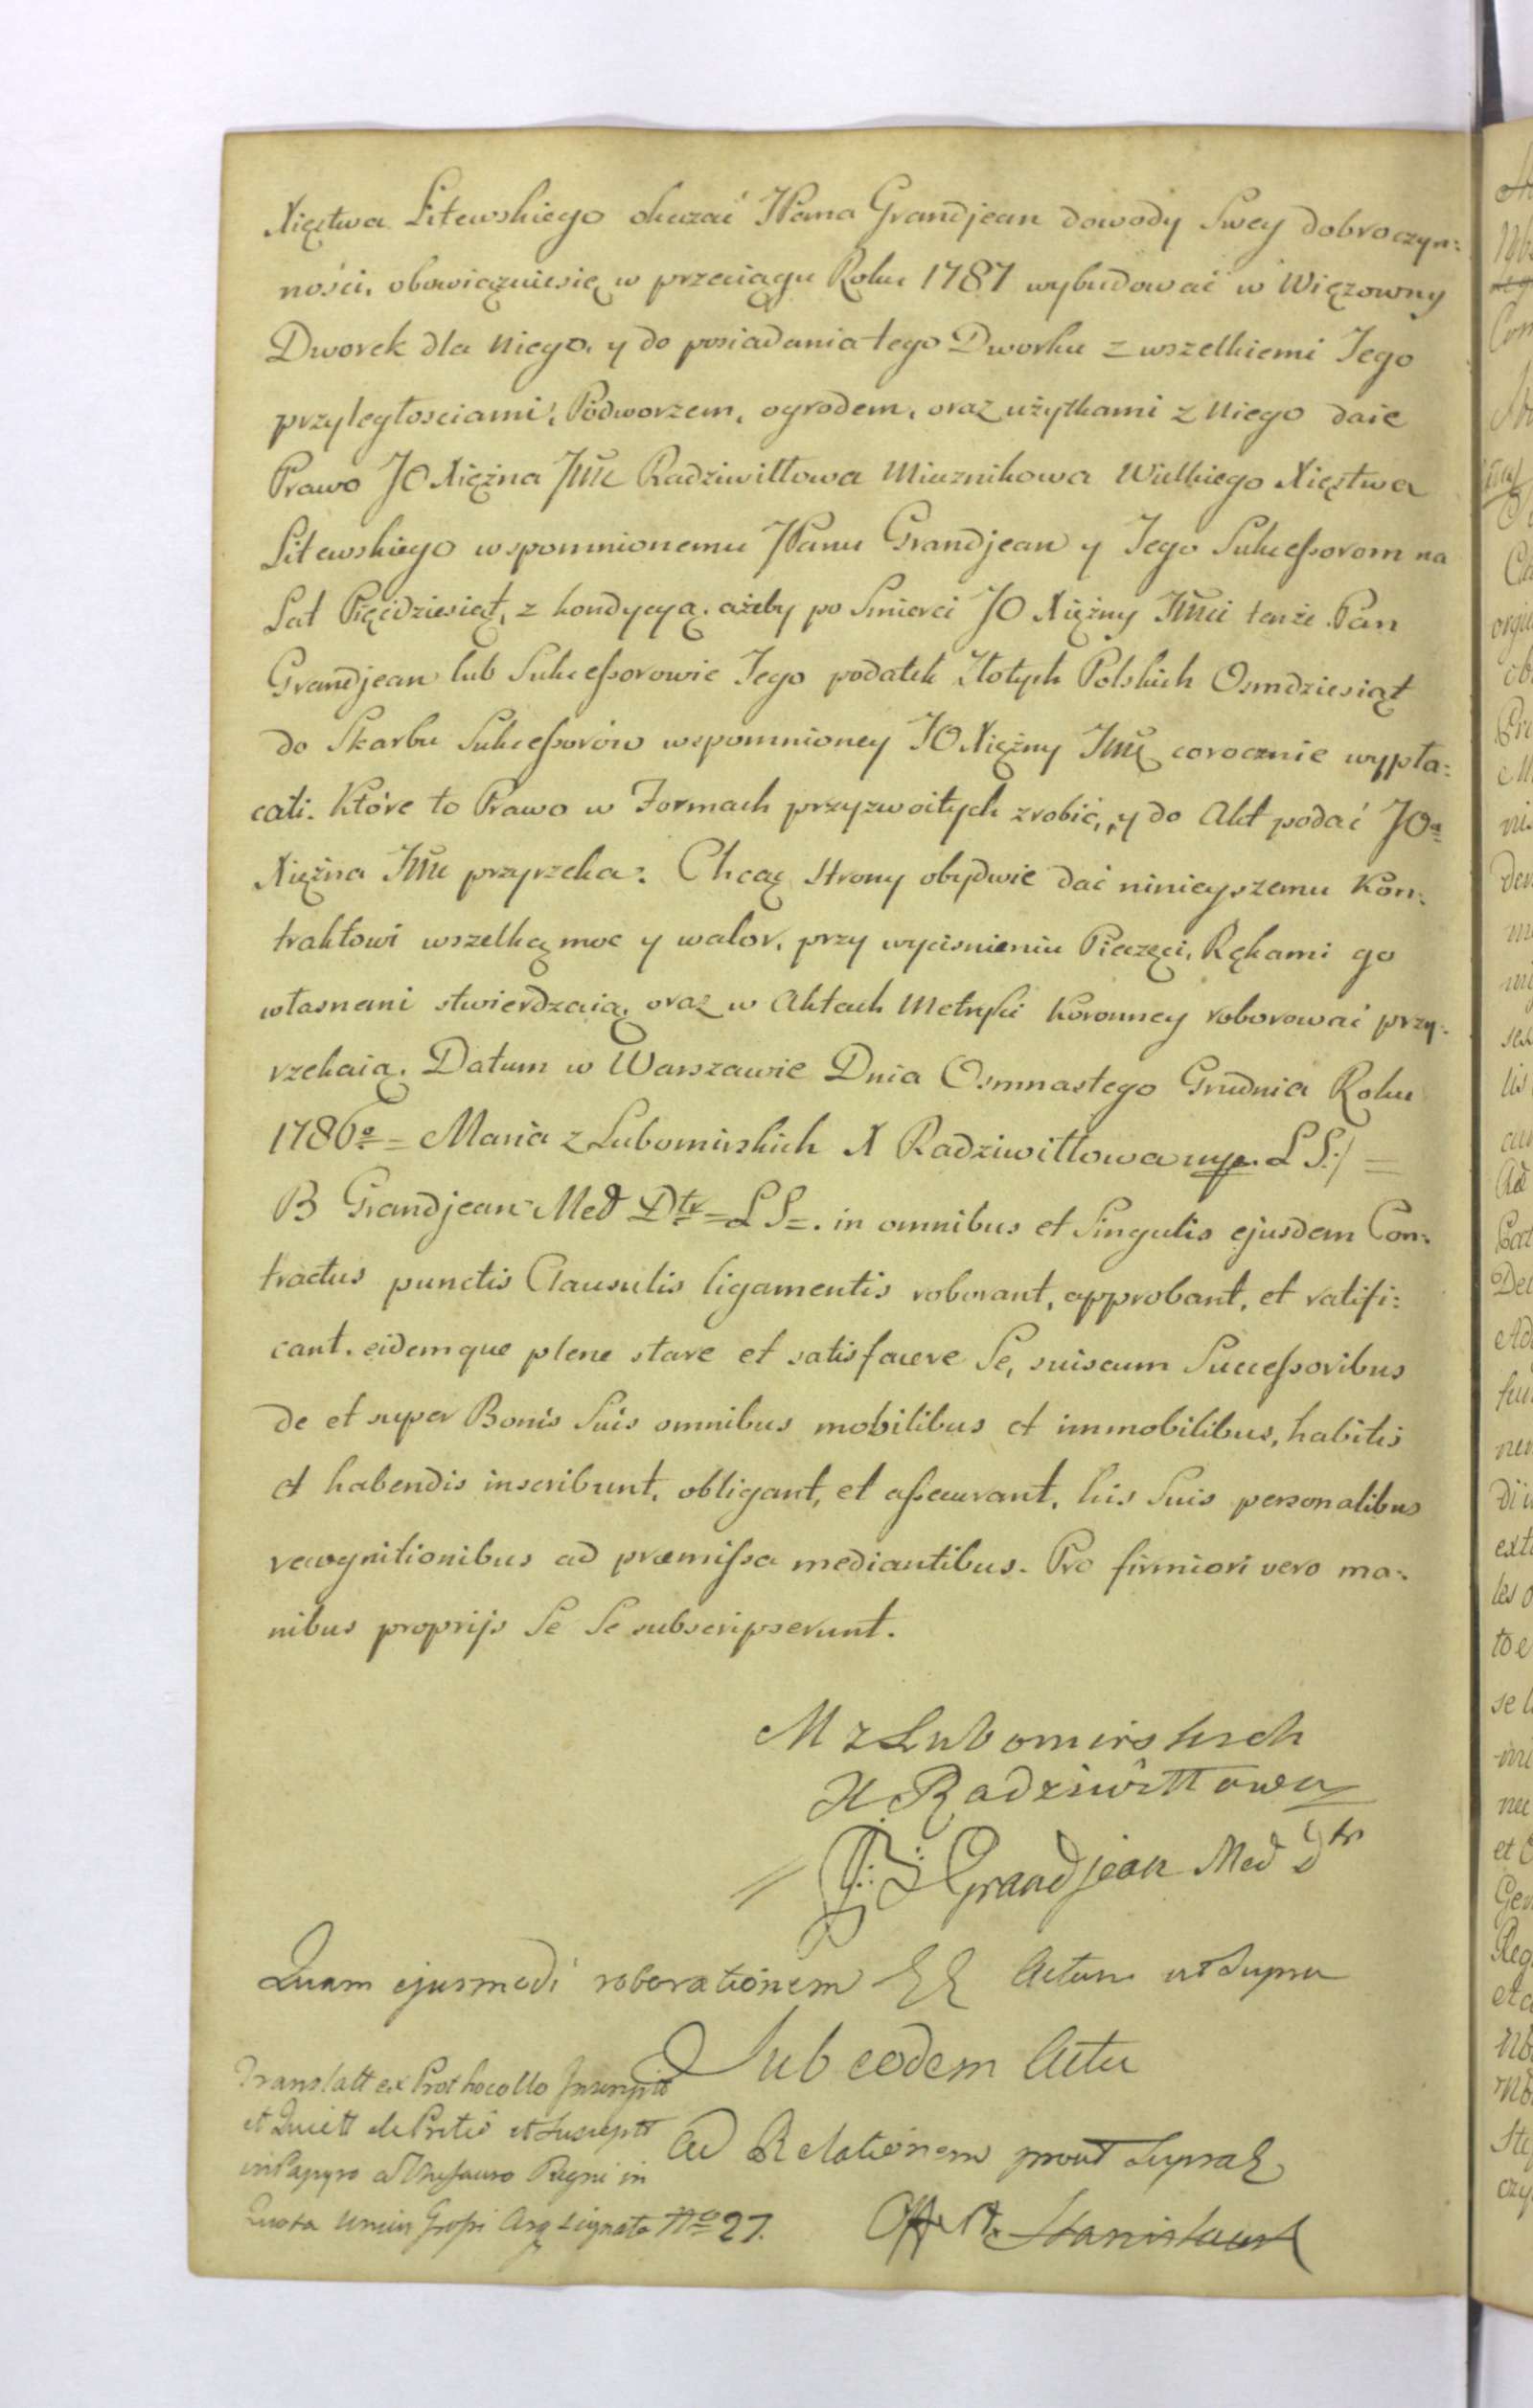 Xięstwa Litewskiego okazać JPana Grandjean dowody Swey dobroczyn:
ności. obowięzuiesię w przeciągu Roku 1787 wybudować w Więzowny
Dworek dla Niego, y do posiadania tego Dworku z wszelkiemi Jego
przyległosciami, Podworzem, ogrodem, oraz użytkami z Niego daie
Prawo JO Xiężna Jmć Radziwiłłowa Miecznikowa Wielkiego Xięstwa
Litewskiego wspomnionemu JPanu Grandjean y Jego Sukceſsorom na
Lat Pięćdziesiąt, z kondycyą, ażeby po Smierci JO Xiężny Jmci tenże Pan
Grandjean lub Sukceſsorowie Jego podatek Złotych Polskich Osmdziesiąt
do Skarbu Sukceſsorów wspomnioney JO Xiężny Jmć corocznie wypła:
cali. Które to Prawo w Formach przyzwoitych zrobić, y do Akt podać JOa
Xiężna Jmć przyrzeka: Chcąc Strony obydwie dać ninieyszemu Kon:
traktowi wszelką moc y walor, przy wyciśnieniu Pieczęci, Rękami go
własnemi stwierdzaią, oraz w Aktach Metryki Koronney roborować przy:
rzekaią. Datum w Warszawie Dnia Osmnastego Grudnia Roku
1786o = Maria z Lubomirskich X Radziwiłłowa mp. L S:/ =
B Grandjean Med Dtr = L S =. in omnibus et Singulis ejusdem Con:
tractus punctis Clausulis ligamentis roborant, approbant, et ratifi:
cant. eidemque plene stare et satisfacere Se, suiscum Succeſsoribus
de et super Bonis Suis omnibus mobilibus et immobilibus, habitis
et habendis inscribunt, obligant, et aſsecurant, his Suis personalibus
recognitionibus ad præmiſsa mediantibus. Pro firmiori vero ma:
nibus proprijs Se Se subscripserunt.
M z Lubomirskich
X Radziwiłłowa
Grandjean Med Dtr
Quam ejusmodi roborationem Actum ut Supra
Sub eodem Actu
Translatt ex Prothocollo Inscriptt
et Quiett de Pretio et Susceptt
in Papyro a Thesauro Regni in
Quota unius Groſsi Arg signato No 27.
Ad Relationem prout Supra